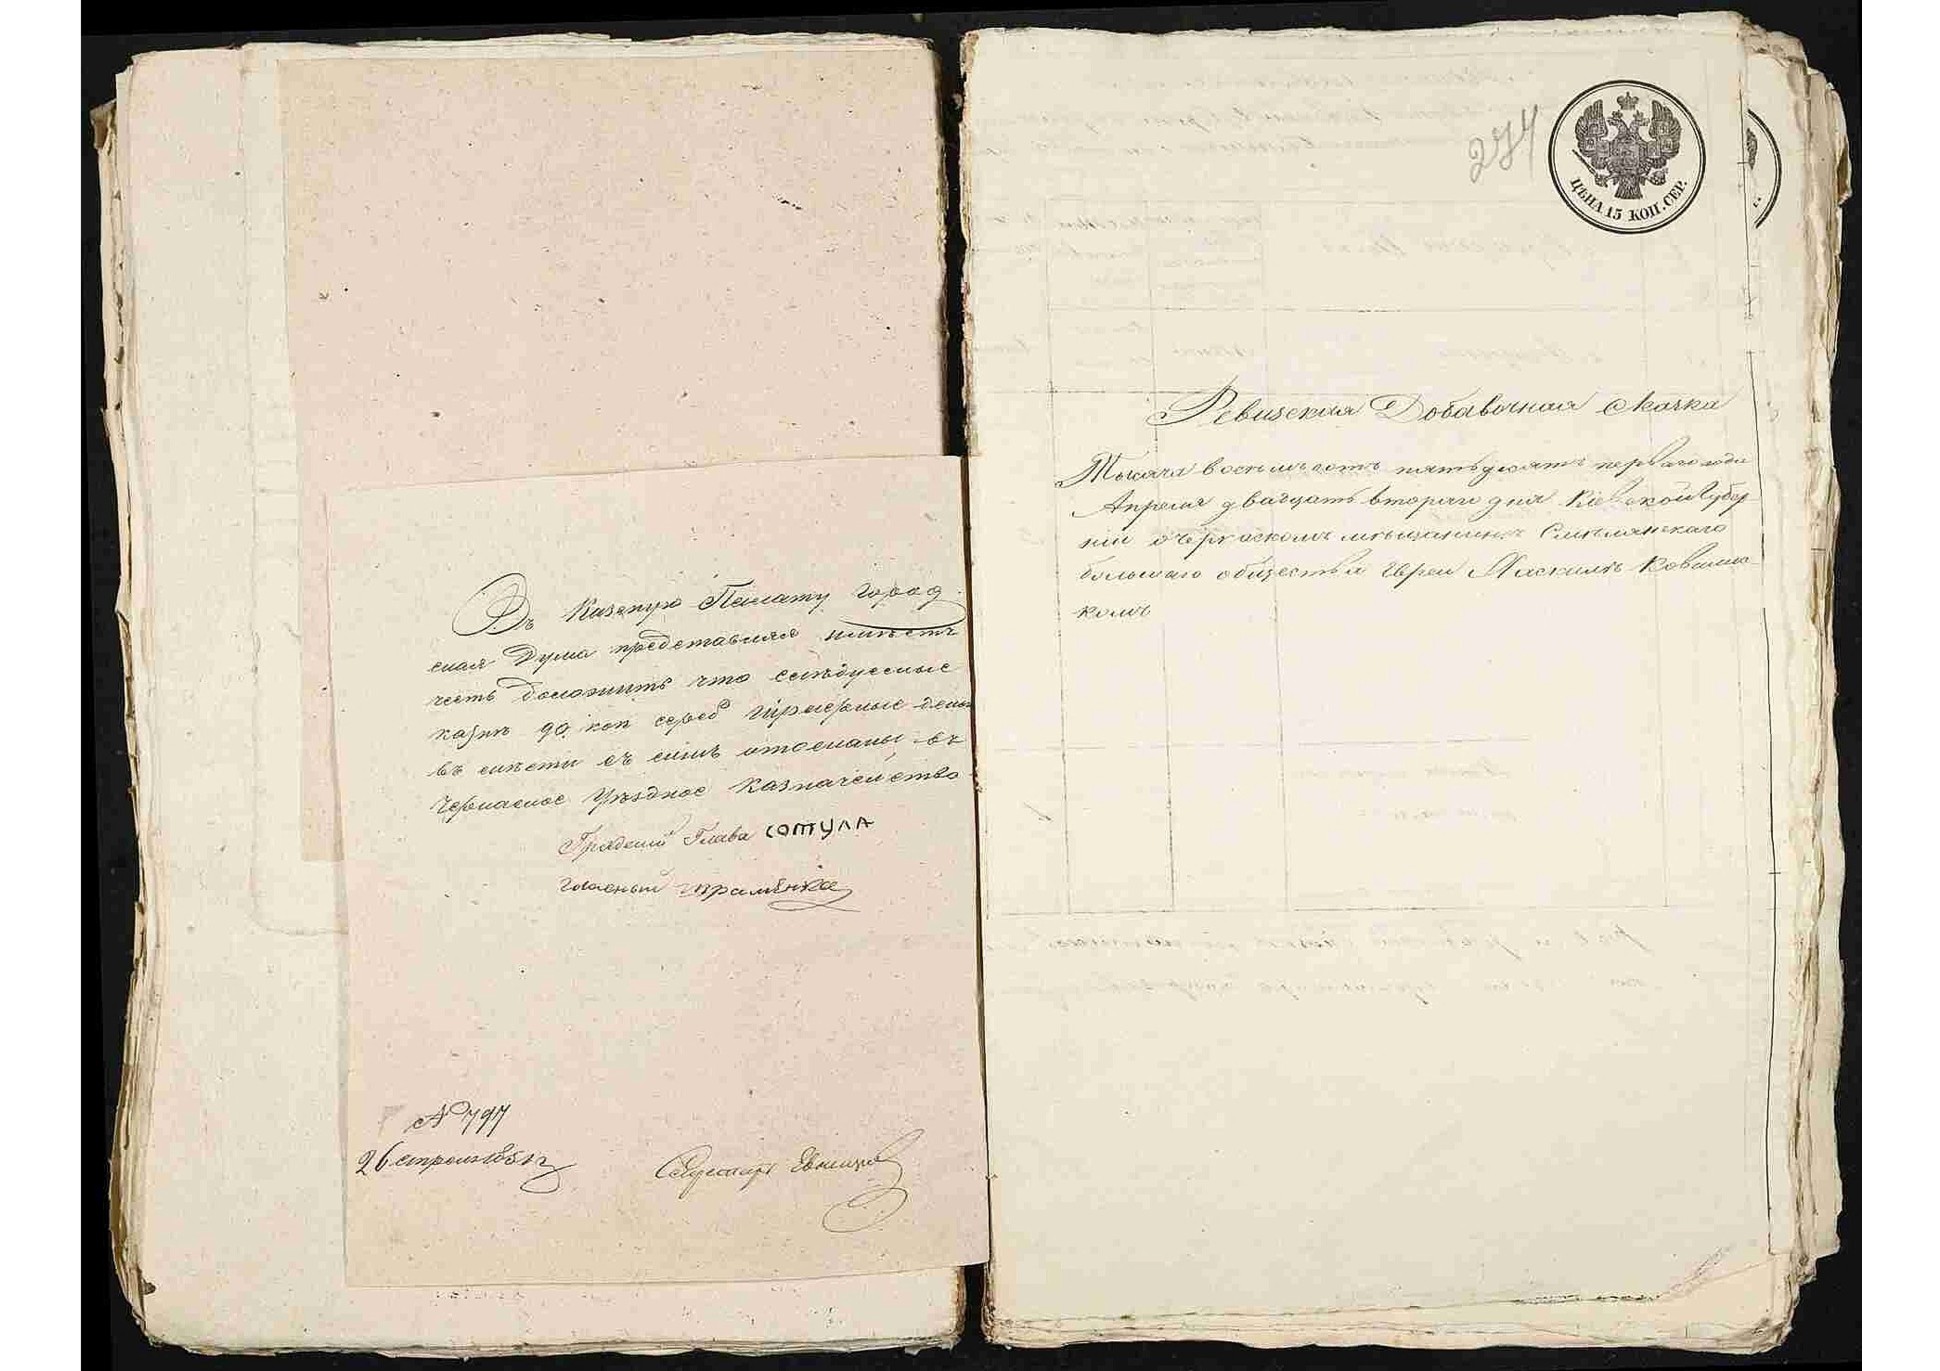 Въ Казенную Палату Город
ская Дума представляя имѣетъ
честь доложить что слѣдуемые
казнѣ 90 коп сереб гербовые деньг
въ мѣстѣ съ симъ отосланы въ
Черкаское Уѣздное Казначейство
Градский Глава СОТУЛА
Гласный
№ 797
26 апреля 1851 г
Секретарь
274
ЦѢНА 15 КОП. СЕР.
Ревизская Добавочная сказка
Тысяча восемьсотъ пятьдесятъ перваго года
Апреля двадцать втораго дня Кіевской Губер
ніи о черкаскомъ мѣщанинѣ Смѣлянскаго
большаго общества Евреи Хаскилѣ Ковалис
комъ